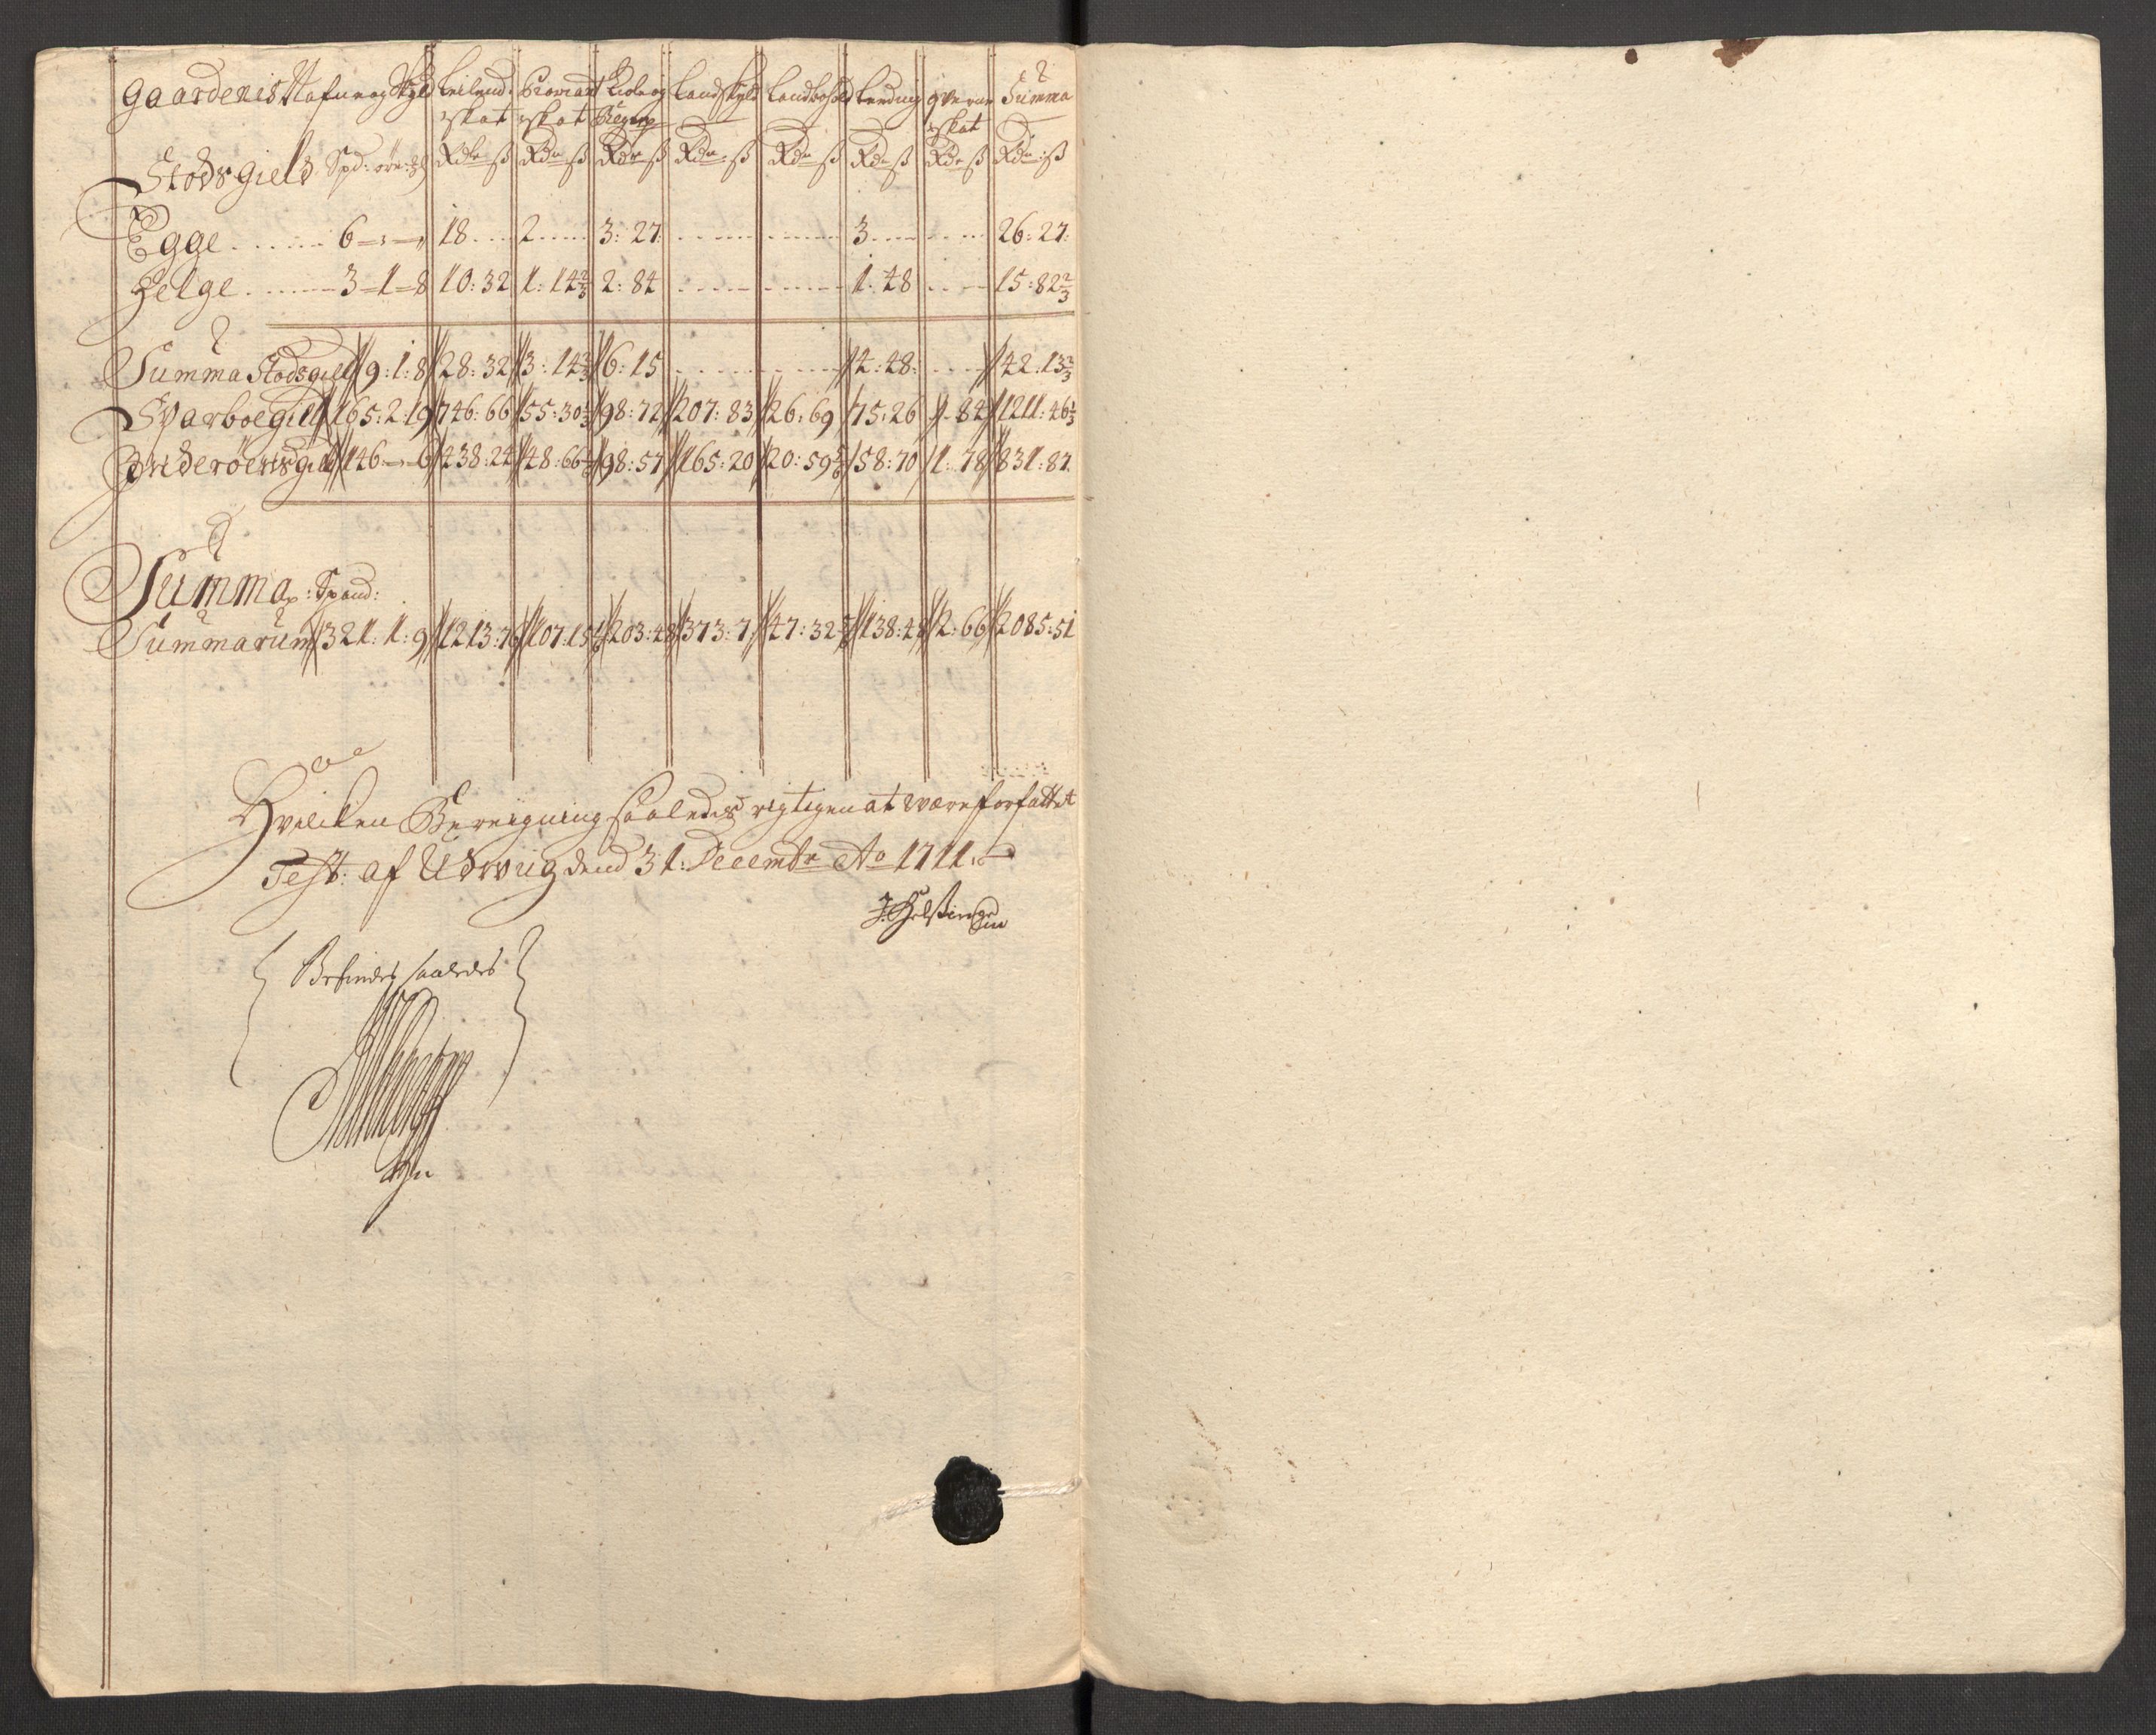 Gaardenis Nafn og Skyld Leilend: Proviant Kiole og Landskyld Landbohold Leeding Qverne Summa
skat skat skat
Stods gield Spd: ore: Rdr ß Rdr ß Rdr ß Rdr ß Rdr ß Rdr ß Rdr ß Rdr ß
Egge 6 18 2 3: 27 3 26: 27
Helge 3-1-8 10: 32 1: 14 2/3 2: 84 1: 48 15: 82 2/3
Summa Stodsgield 9: 1: 8 28: 32 3: 14 2/3 6: 15 4: 48 42: 13 2/3
Sparboegield 165: 2: 19 746: 66 55: 30 1/3 98: 72 207: 83 26: 69 75: 26 84 1211: 46 1/3
Inderøensgield 146 6 438: 24 48: 66 98: 57 165: 20 20: 59 58: 70 1: 78 831: 87
Summa: Spand:
Summarum 321: 1: 9 1213: 107: 15 203: 48 373: 7 47: 32 138: 48 2: 66 2085: 51
Hvilcken Bereigning saaledis rigtigen at være forfattet
Test: af Udvug dend 31: Decembr Ao 1711
J. Helsing
Befindes saaledes